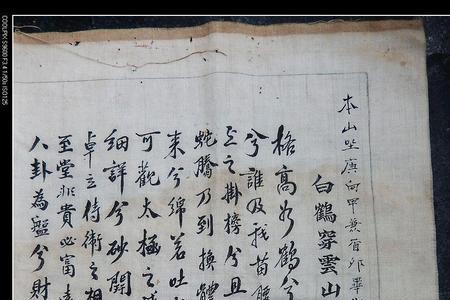 本山坐庚向甲兼酉卯畢
白鶴穿雲山
格高如鶴兮
兮誰及我苗腰
之掛榜兮且
蛇騰乃到換體
来兮綿若吐
可觀太極之
細詳兮砂開
卓立侍衛之相
至堂非貴必富
八卦為盤兮財
COOLPIX S9600 F3.4 1/50s ISO125